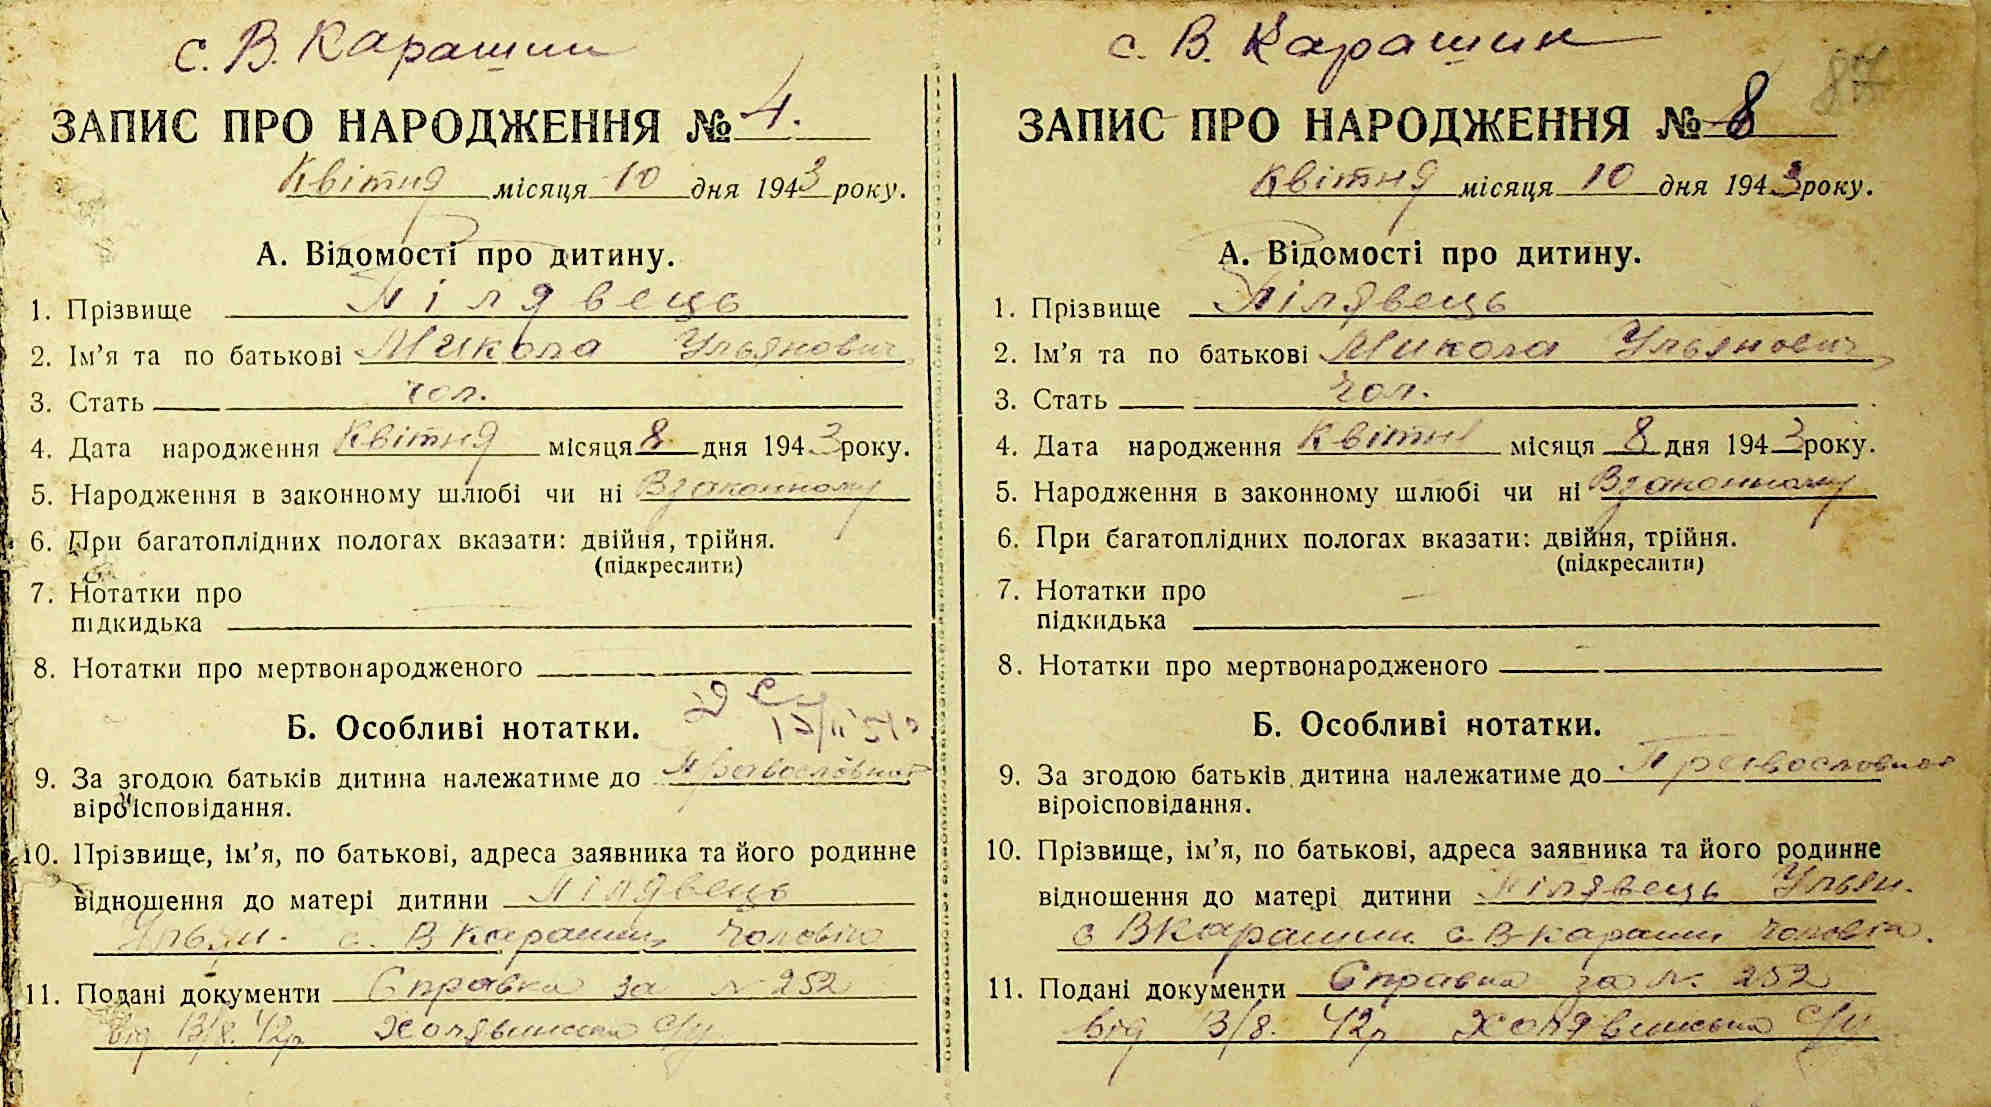 с. В. Карашин
ЗАПИС ПРО НАРОДЖЕННЯ № 4.
Квітня місяця 10 дня 1943 року.
А. Відомості про дитину.
1. Прізвище Пілявець
2. Ім'я та по батькові Микола Ульянович
3. Стать чол.
4. Дата народження Квітня місяця 8 дня 1943 року.
5. Народження в законному шлюбі чи ні В законному
6. При багатоплідних пологах вказати: двійня, трійня.
(підкреслити)
7. Нотатки про
підкидька
8. Нотатки про мертвонародженого
Б. Особливі нотатки.
9. За згодою батьків дитина належатиме до Православного
віроісповідання.
10. Прізвище, ім'я, по батькові, адреса заявника та його родинне
відношення до матері дитини Пілявець
Ульян. с. В Карашин
11. Подані документи Справка за № 252
від 13/8. 42р. с/у
с. В. Карашин
87
ЗАПИС ПРО НАРОДЖЕННЯ № 8
Квітня місяця 10 дня 1943 року.
А. Відомості про дитину.
1. Прізвище Пілявець
2. Ім'я та по батькові Микола Ульянович
3. Стать Чол.
4. Дата народження Квітня місяця 8 дня 1943 року.
5. Народження в законному шлюбі чи ні В законному
6. При багатоплідних пологах вказати: двійня, трійня.
(підкреслити)
7. Нотатки про
підкидька
8. Нотатки про мертвонародженого
Б. Особливі нотатки.
9. За згодою батьків дитина належатиме до Православної
віроісповідання.
10. Прізвище, ім'я, по батькові, адреса заявника та його родинне
відношення до матері дитини Пілявець Ульян.
с В Карашин с. В-Карашин
11. Подані документи Справка за №. 252
від 13/8. 42р с/у